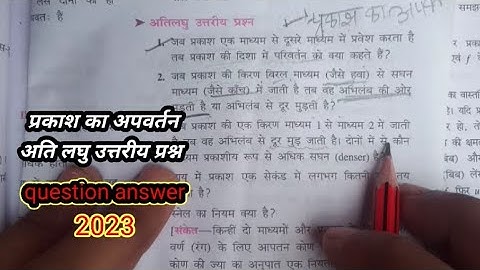 प्रकाश का अपवर्तन
अतिलघु उत्तरीय प्रश्न
1. जब प्रकाश एक माध्यम से दूसरे माध्यम में प्रवेश करता है
तब प्रकाश की दिशा में परिवर्तन को क्या कहते हैं?
2. जब प्रकाश की किरण विरल माध्यम (जैसे हवा) से सघन
माध्यम (जैसे काँच) में जाती है तब वह अभिलंब की ओर
मुड़ती है या अभिलंब से दूर मुड़ती है?
प्रकाश की एक किरण माध्यम 1 से माध्यम 2 में जाती
वह अभिलंब से दूर मुड़ जाती है। दोनों में से कौन
माध्यम प्रकाशीय रूप से अधिक सघन (denser) है
प्रकाश एक सेकंड में लगभग कितनी
स्नेल का नियम क्या है?
[संकेत—किन्हीं दो माध्यमों और
वर्ण (रंग) के लिए आपतन कोण
कोण की ज्या का अनुपात एक नियत
प्रकाश का अपवर्तन
अति लघु उत्तरीय प्रश्न
question answer
2023